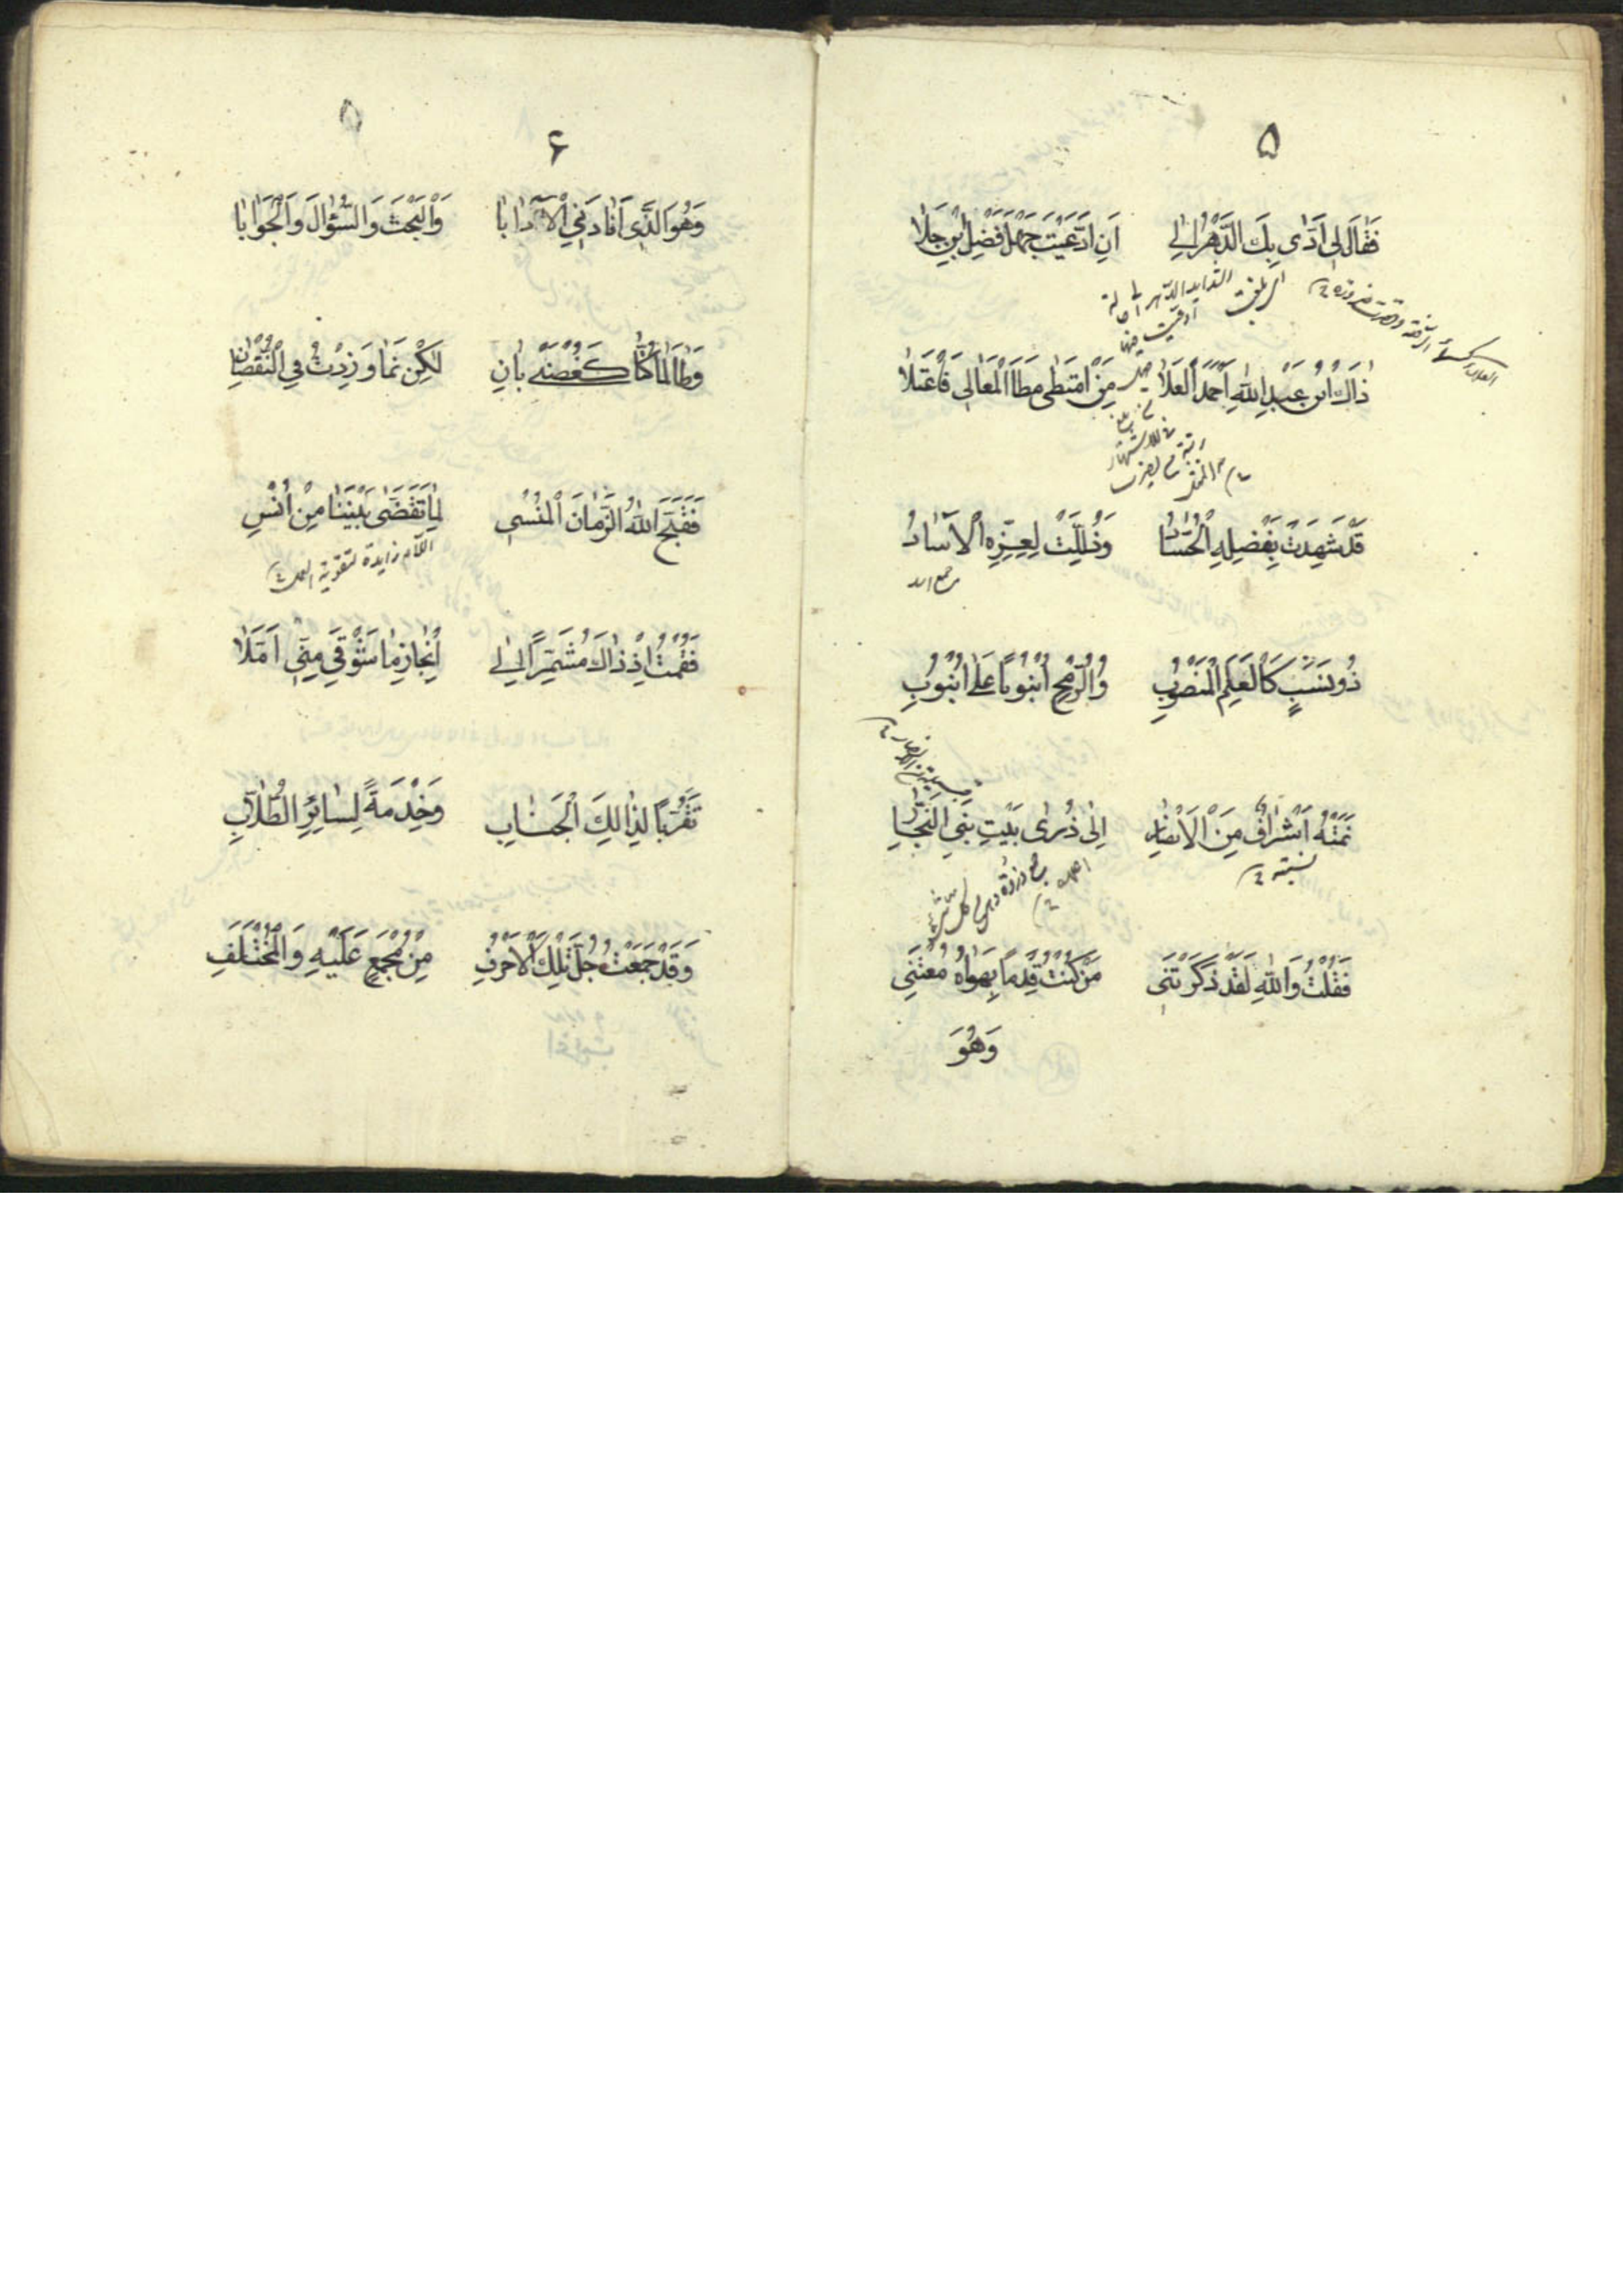 ۵
فَقَالَ لِى اَدّٰى بِكَ الدَّهْرُ اِلٰى اَنِ ادَّعَيْتَ جَهْلَ فَضْلِ ابْنِ جَلَا
ذَاكَ ابْنُ عَبْدِ اللهِ اَحْمَدُ الْعَلَا مَنِ امْتَطٰى مَطَا الْمَعَالِى فَاعْتَلَا
قَدْ شَهِدَتْ بِفَضْلِهِ الْحُسَّادُ وَذُلِّلَتْ لِعِزِّهِ الْآسَادُ
جمع اسد
ذُو نَسَبٍ كَالْعَلَمِ الْمَنْصُوبِ وَالرُّمْحِ اُنْبُوبًا عَلٰى اُنْبُوبِ
نَمَتْهُ اَشْرَافٌ مِنَ الْاَنْصَارِ اِلٰى ذُرٰى بَيْتِ بَنِى النَّجَّارِ
نسبته
فَقُلْتُ وَاللهِ لَقَدْ ذَكَّرْتَنِى مَنْ كُنْتُ قِدْمًا بِهَوَاهُ مُعْتَنِى
وَهُوَ
۶
وَهُوَ الَّذِى اَفَادَنِى الْآدَابَا وَالْبَحْثَ وَالسُّؤَالَ وَالْجَوَابَا
وَطَالَمَا كُنَّا كَغُصْنَىْ بَانِ لٰكِنْ نَمَا وَزِدْتُ فِى النُّقْصَانِ
فَقَبَّحَ اللهُ الزَّمَانَ الْمُنْسِى لِمَا تَقَضّٰى بَيْنَنَا مِنْ اُنْسِ
اللام زايدة لتقوية العمل
فَقُمْتُ اِذْ ذَاكَ مُشَمِّرًا اِلٰى اِنْجَازِ مَا شَوْقِىَ مِنِّى اَمَّلَا
تَقَرُّبًا لِذٰلِكَ الْجَنَابِ وَخِدْمَةً لِسَائِرِ الطُّلَّابِ
وَقَدْ جَمَعْتُ جُلَّ تِلْكَ الْاَحْرُفِ مِنْ مُجْمَعٍ عَلَيْهِ وَالْمُخْتَلَفِ